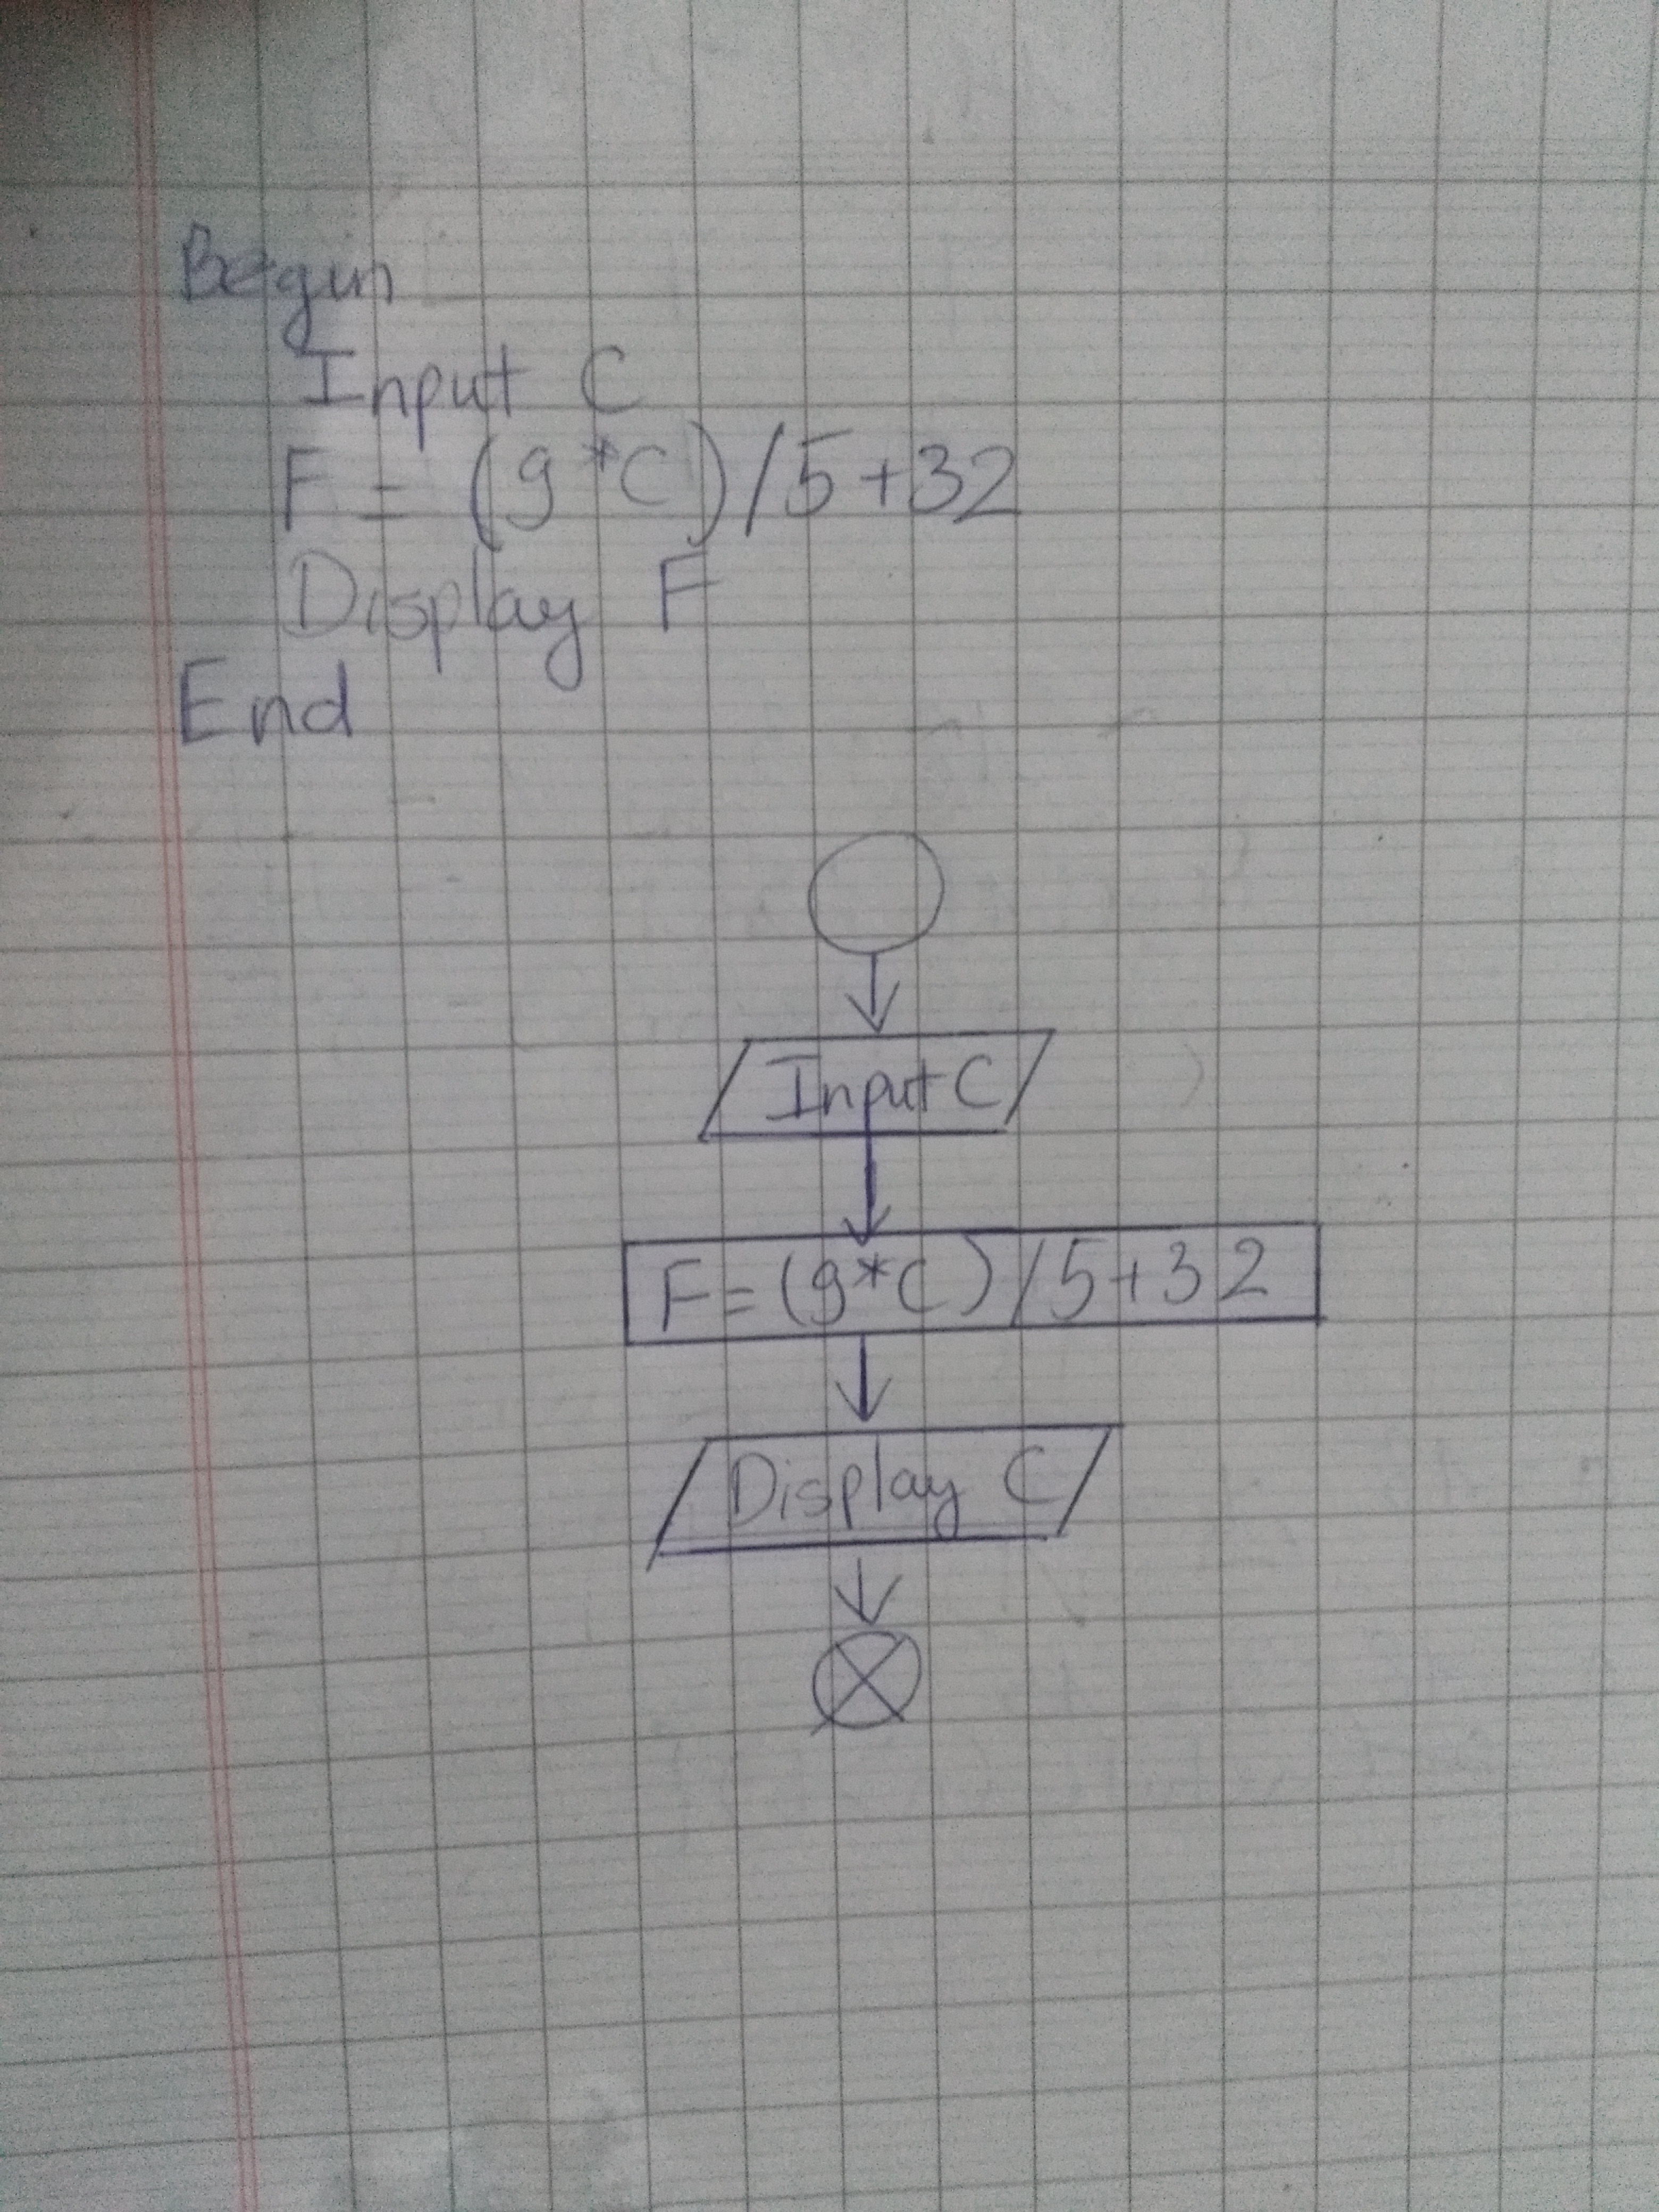 Begin
Input C
F = (9*C)/5+32
Display F
End
Input C
F=(9*C)/5+32
Display C